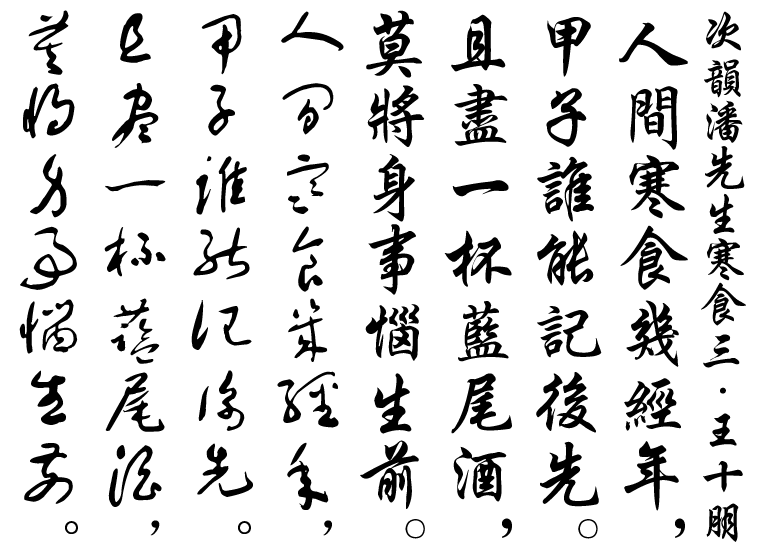 次韻潘先生寒食三·王十朋
人間寒食幾經年，
甲子誰能記後先。
且盡一杯藍尾酒，
莫將身事惱生前。
人間寒食幾經年，
甲子誰能記後先。
且盡一杯藍尾酒，
莫將身事惱生前。